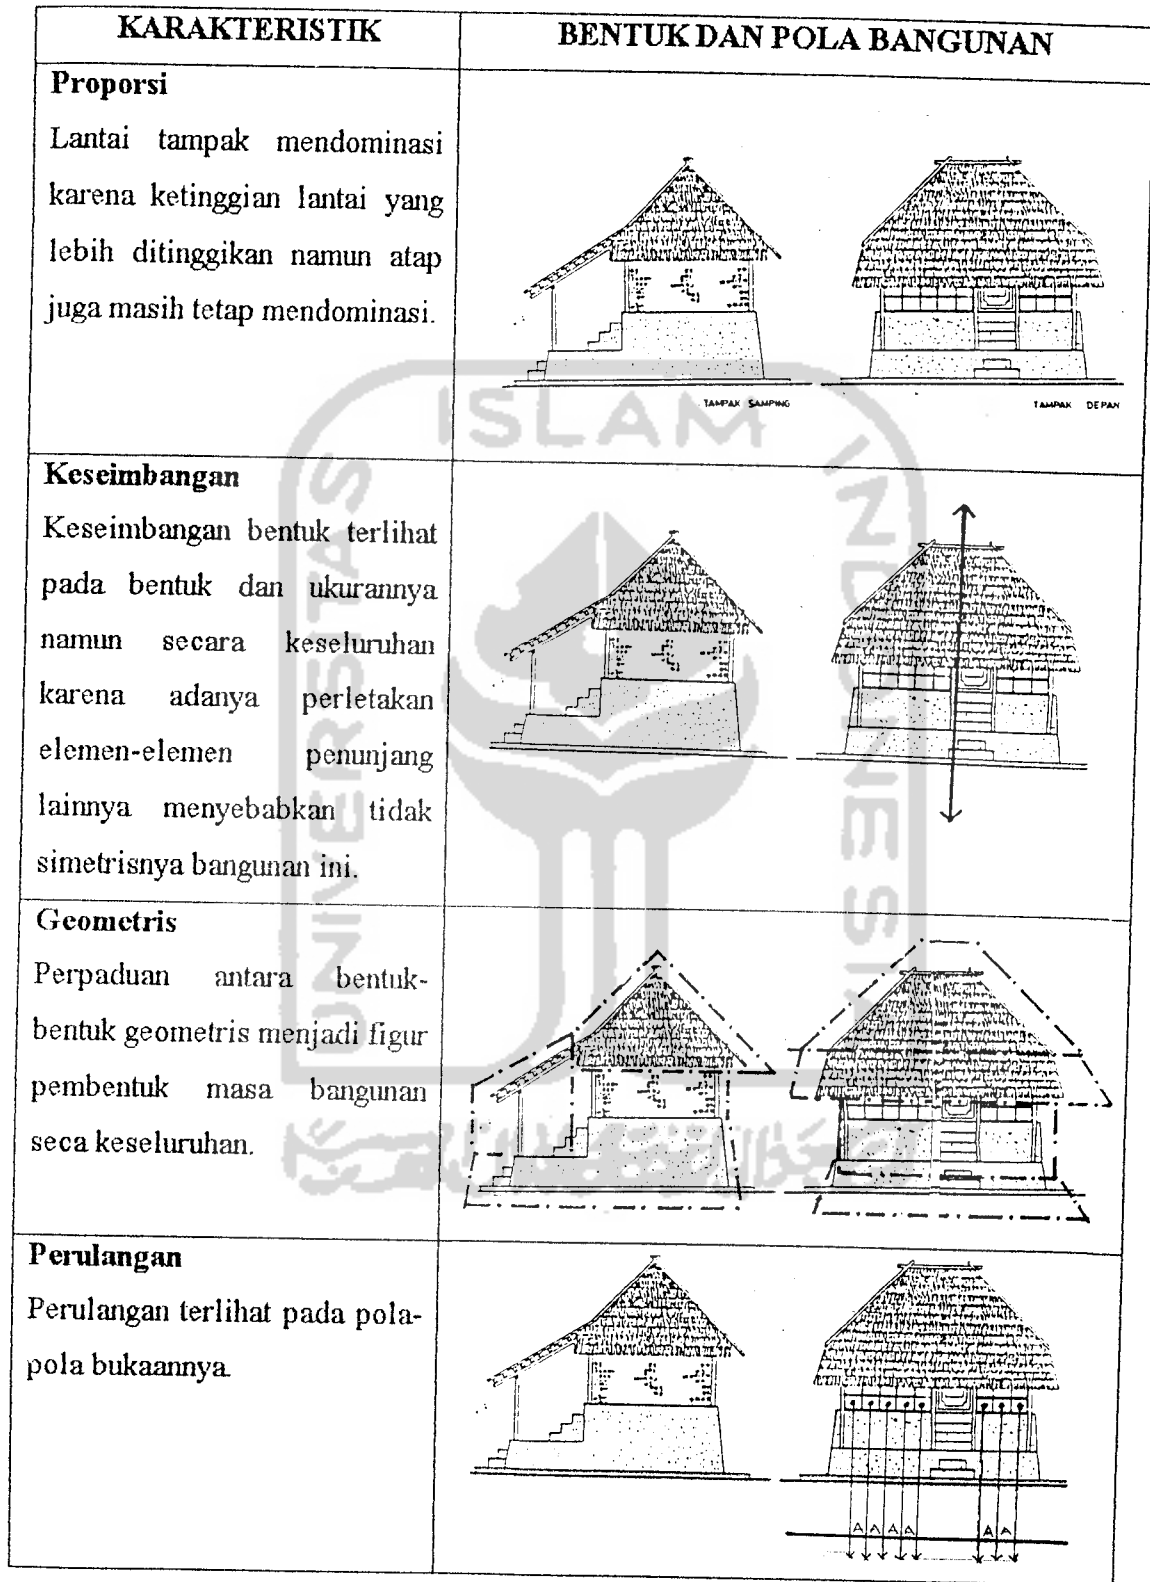 KARAKTERISTIK
BENTUK DAN POLA BANGUNAN
Proporsi
Lantai tampak mendominasi
karena ketinggian lantai yang
lebih ditinggikan namun atap
juga masih tetap mendominasi.
TAMPAK SAMPING
TAMPAK DEPAN
Keseimbangan
Keseimbangan bentuk terlihat
pada bentuk dan ukurannya
namun secara keseluruhan
karena adanya perletakan
elemen-elemen penunjang
lainnya menyebabkan tidak
simetrisnya bangunan ini.
Geometris
Perpaduan antara bentuk-
bentuk geometris menjadi figur
pembentuk masa bangunan
seca keseluruhan.
Perulangan
Perulangan terlihat pada pola-
pola bukaannya.
A A A A A A
UNIVERSITAS
ISLAM
INDONESIA